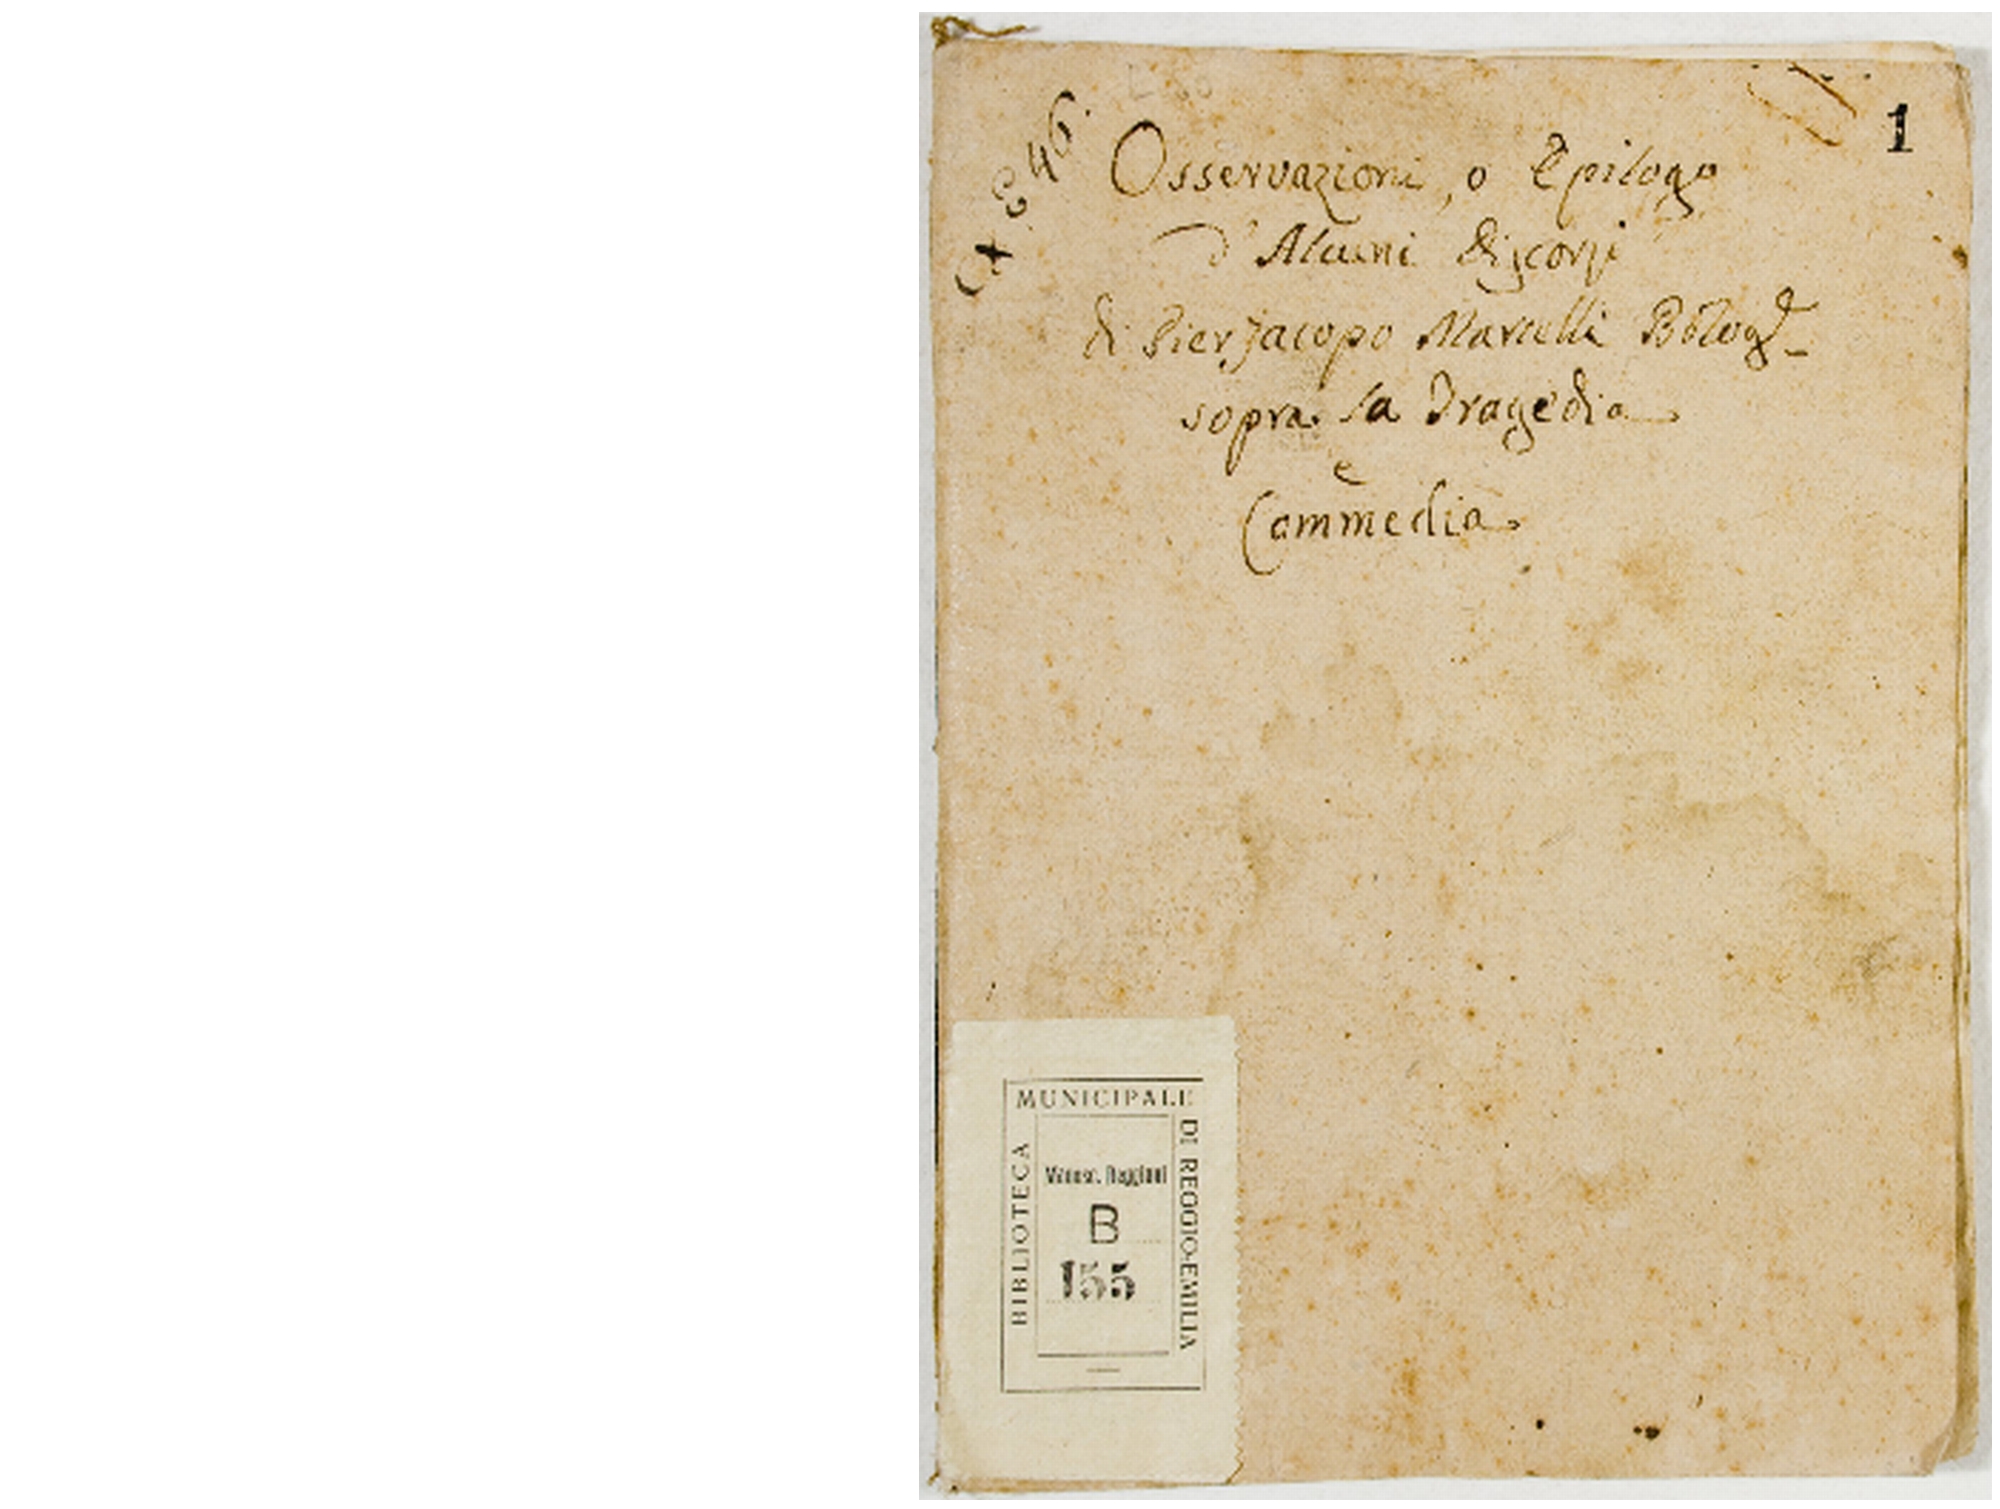 1
Osservazioni, o Epilogo
d'Alcuni Discorsi
di Pier Jacopo Martelli Bologe
sopra la Tragedia
e
Commedia.
MUNICIPALE
BIBLIOTECA
DI REGGIO-EMILIA
Manosc. Reggiani
B
155